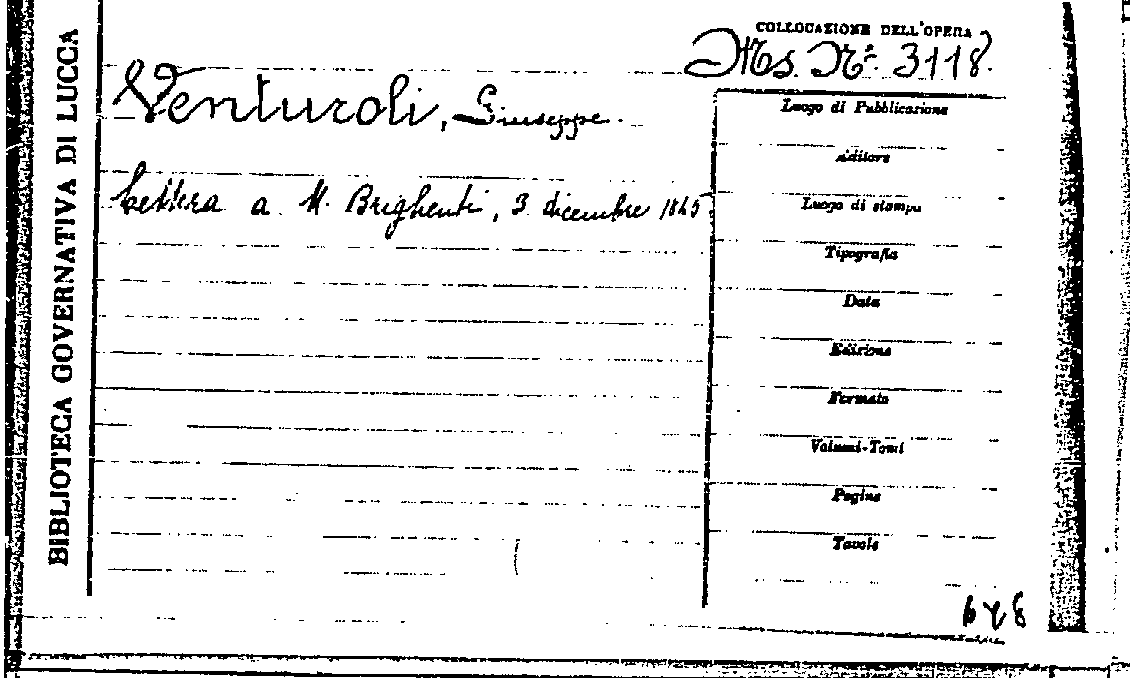 BIBLIOTECA GOVERNATIVA DI LUCCA
COLLOCAZIONE DELL'OPERA
Ms. N° 3118.
Venturoli, Giuseppe.
Lettera a M. Brighenti, 3 dicembre
Luogo di Pubblicazione
Editore
Luogo di stampa
Tipografia
Data
Edizione
Formato
Volumi-Tomi
Pagine
Tavole